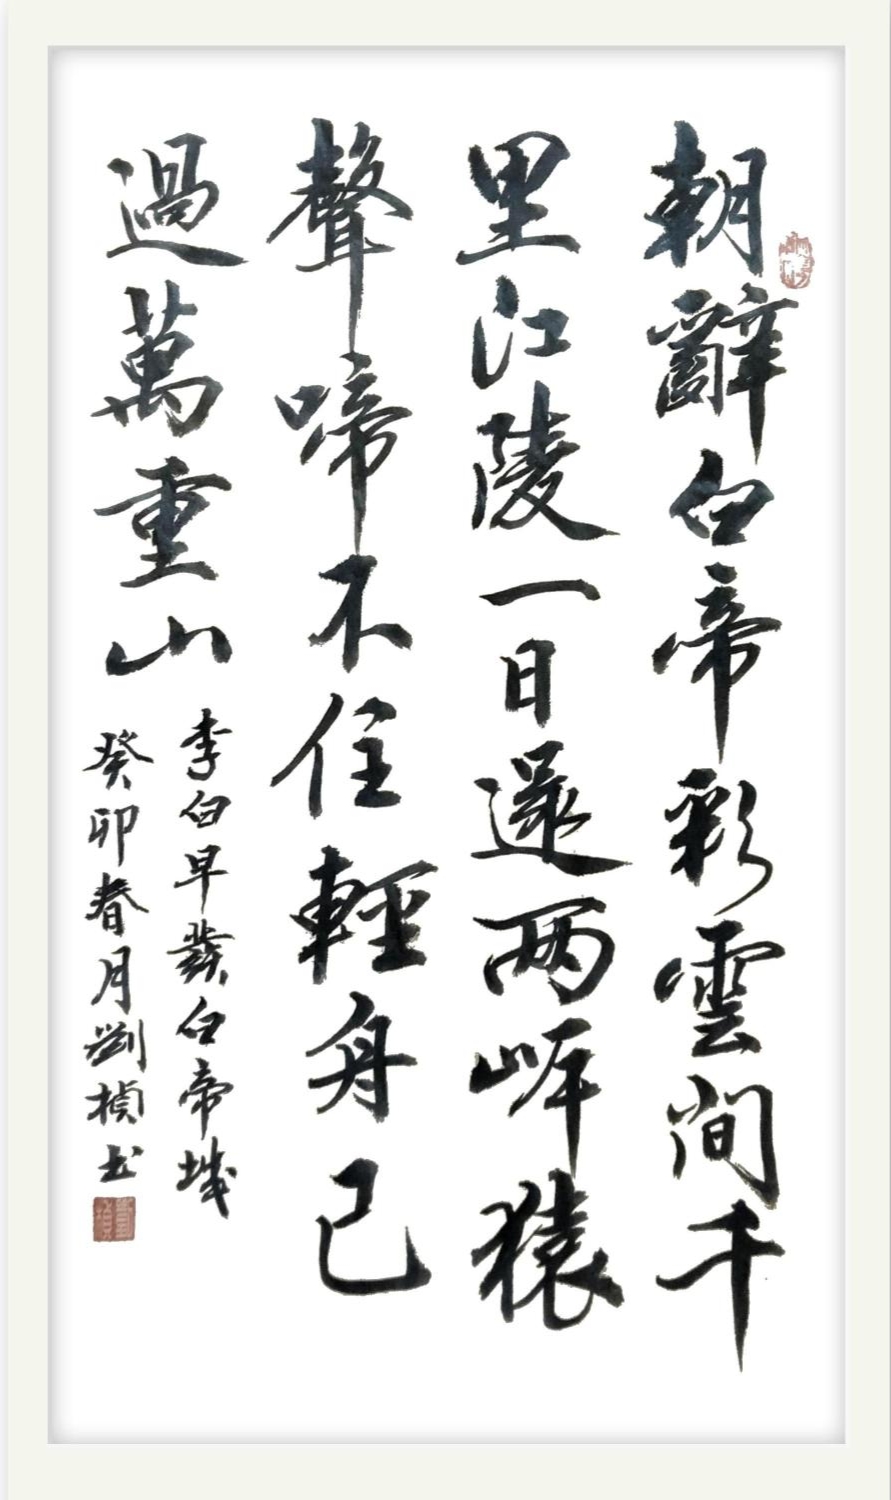 朝辭白帝彩雲間千
里江陵一日還两岸猿
聲啼不住輕舟已
過萬重山
李白早發白帝城
癸卯春月劉楨书
劉楨